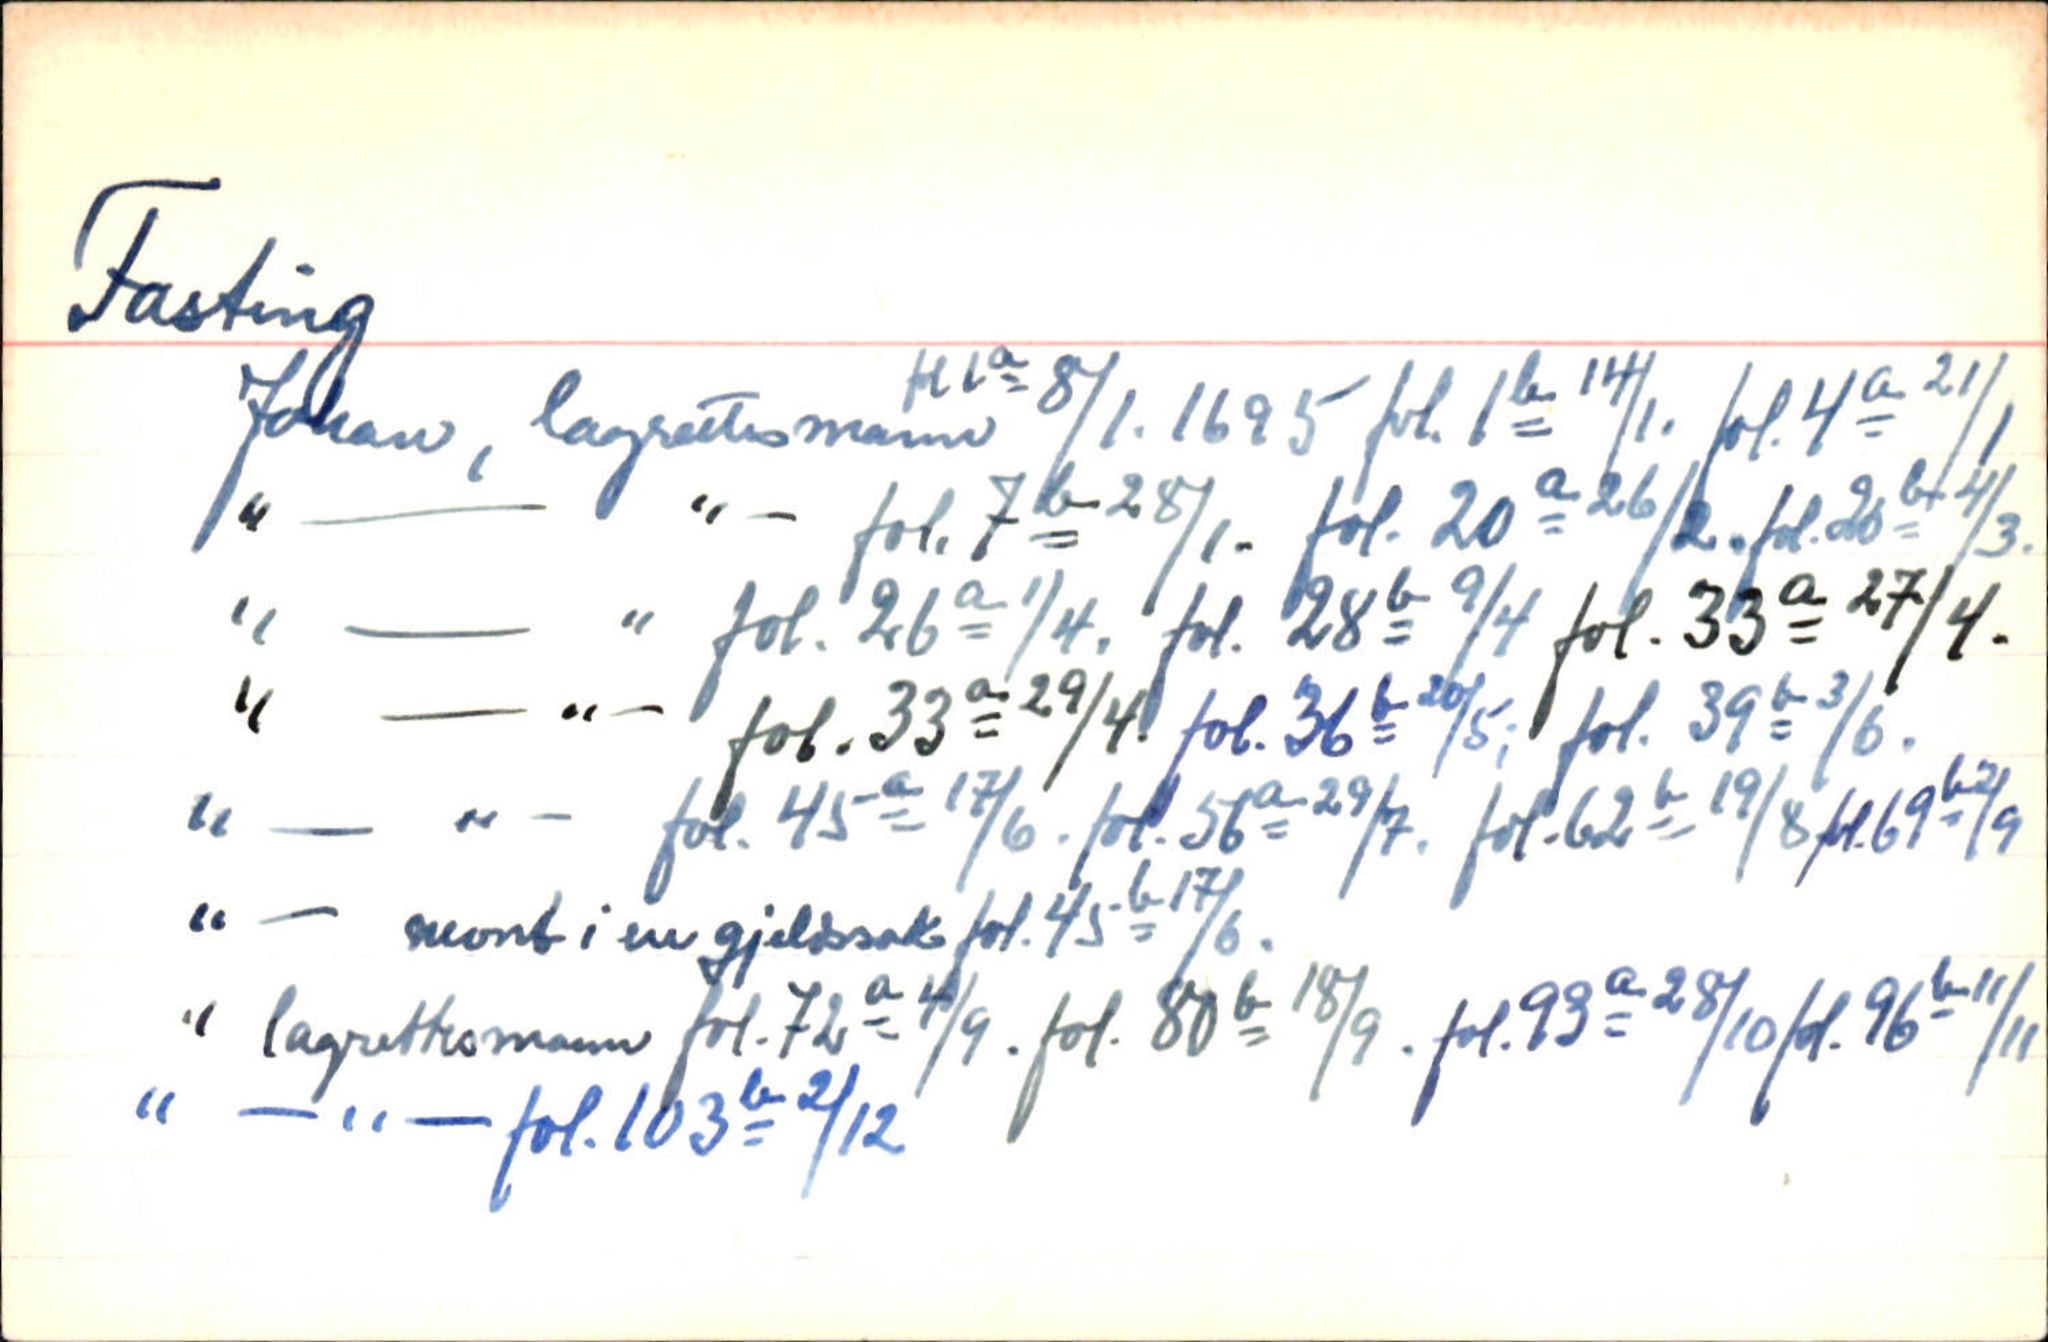 Fasting
Johan, lagrettesmann fol 1a 8/1. 1695 fol. 1b 14/1. fol. 4a 21/1
" — " — fol. 7b 28/1. fol. 20a 26/2. fol. 20b 4/3.
" — " fol. 26a 1/4. fol. 28b 9/4 fol. 33a 27/4.
" — " — fol. 33a 29/4. fol. 36b 20/5; fol. 39b 3/6.
" — " — fol. 45a 17/6. fol. 56a 29/7. fol. 62b 19/8 fol. 69b 2/9
" — nevnt i en gjeldssak fol. 45b 17/6.
" lagrettesmann fol. 72a 4/9. fol. 80b 18/9. fol. 93a 28/10 fol. 96b 11/11
" — " — fol. 103b 2/12